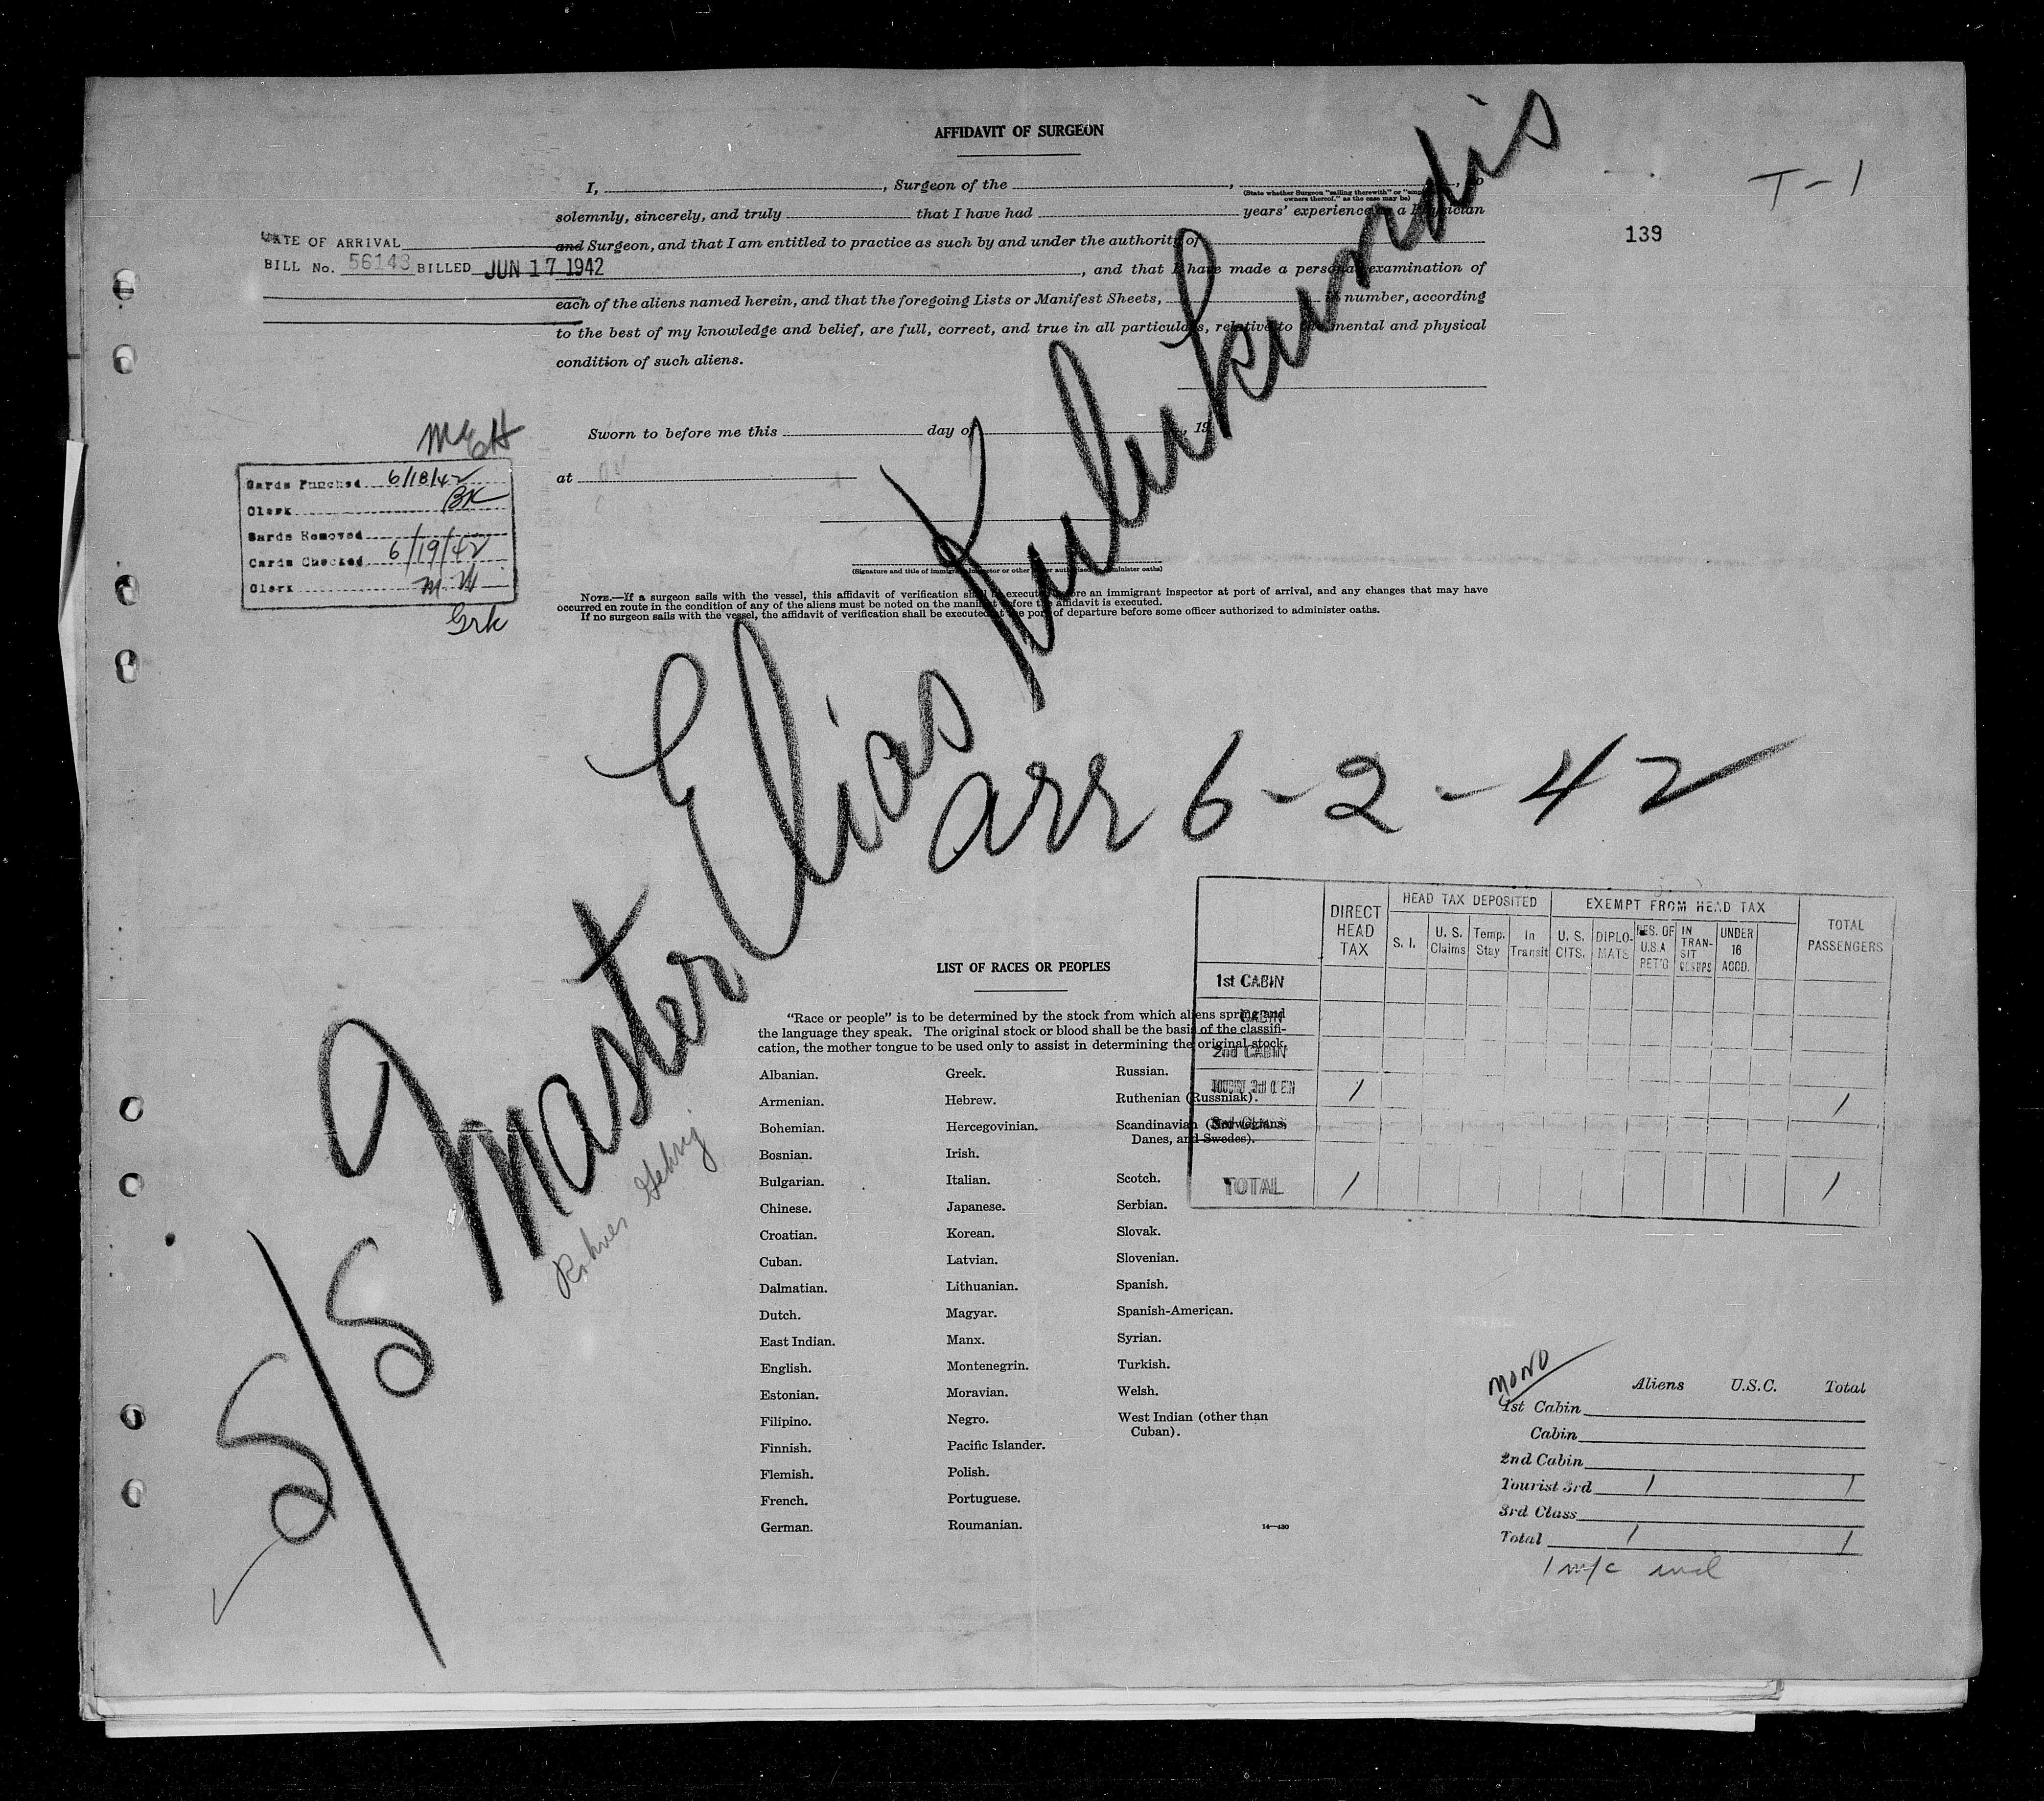 AFFIDAVIT OF SURGEON
T-1
139
I, , Surgeon of the , , do
(State whether Surgeon "sailing therewith" or "emp
owners thereof," as the case may be)
solemnly, sincerely, and truly that I have had years' experience as a Physician
and Surgeon, and that I am entitled to practice as such by and under the authority of
, and that I have made a personal examination of
each of the aliens named herein, and that the foregoing Lists or Manifest Sheets, in number, according
to the best of my knowledge and belief, are full, correct, and true in all particulars, relative to the mental and physical
condition of such aliens.
DATE OF ARRIVAL
BILL No. 56143 BILLED JUN 17 1942
Sworn to before me this day of , 19
at
(Signature and title of immigrant inspector or other officer authorized to administer oaths)
NOTE.—If a surgeon sails with the vessel, this affidavit of verification shall be executed before an immigrant inspector at port of arrival, and any changes that may have
occurred en route in the condition of any of the aliens must be noted on the manifest before the affidavit is executed.
If no surgeon sails with the vessel, the affidavit of verification shall be executed at the port of departure before some officer authorized to administer oaths.
MEH
Cards Punched 6/18/42
Clerk BK
Cards Removed
Cards Checked 6/19/42
Clerk M.W
Grk
S/S Master Elias Kulukundis
arr 6-2-42
DIRECT HEAD TAX
HEAD TAX DEPOSITED
S. I.
U. S. Claims
Temp. Stay
In Transit
EXEMPT FROM HEAD TAX
U. S. CITS.
DIPLOMATS
RES. OF U.S.A RET'G
IN TRANSIT
UNDER 16 ACCD.
TOTAL PASSENGERS
1st CABIN
CABIN
2nd CABIN
TOURIST 3rd 1 1
3rd CLASS
TOTAL 1 1
LIST OF RACES OR PEOPLES
"Race or people" is to be determined by the stock from which aliens spring and
the language they speak. The original stock or blood shall be the basis of the classifi-
cation, the mother tongue to be used only to assist in determining the original stock.
Albanian.
Armenian.
Bohemian.
Bosnian.
Bulgarian.
Chinese.
Croatian.
Cuban.
Dalmatian.
Dutch.
East Indian.
English.
Estonian.
Filipino.
Finnish.
Flemish.
French.
German.
Greek.
Hebrew.
Hercegovinian.
Irish.
Italian.
Japanese.
Korean.
Latvian.
Lithuanian.
Magyar.
Manx.
Montenegrin.
Moravian.
Negro.
Pacific Islander.
Polish.
Portuguese.
Roumanian.
Russian.
Ruthenian (Russniak).
Scandinavian (Norwegians,
Danes, and Swedes).
Scotch.
Serbian.
Slovak.
Slovenian.
Spanish.
Spanish-American.
Syrian.
Turkish.
Welsh.
West Indian (other than
Cuban).
14—430
Gehrig
MOND
Aliens U.S.C. Total
1st Cabin
Cabin
2nd Cabin
Tourist 3rd 1 1
3rd Class
Total 1 1
1 m/c incl